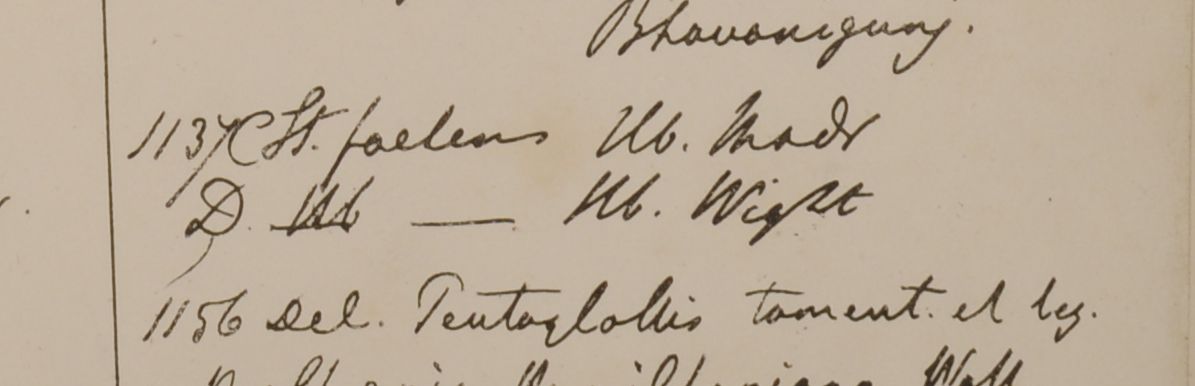 Bhavanigung.
1137 C St. foetens Hb. Madr
D. Hb — Hb. Wight
1156 Del. Pentaglottis toment. et leg.
Wall